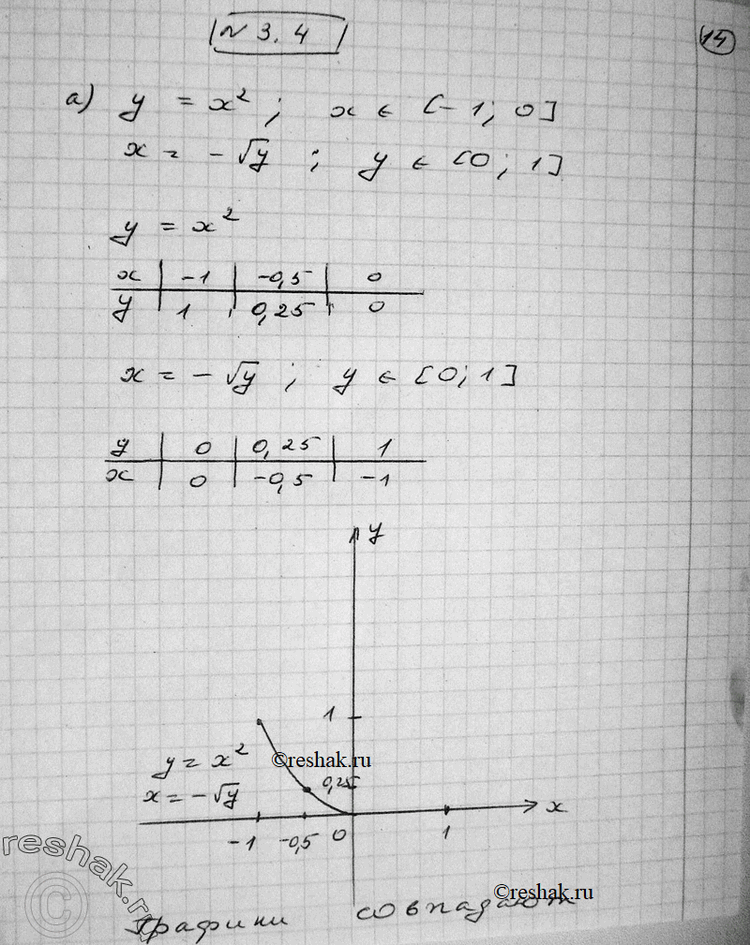 № 3.4
14
а) y = x²; x ∈ [-1; 0]
x = -√y ; y ∈ [0; 1]
y = x²
x | -1 | -0,5 | 0
y | 1 | 0,25 | 0
x = -√y ; y ∈ [0; 1]
y | 0 | 0,25 | 1
x | 0 | -0,5 | -1
y
1
y = x²
©reshak.ru
x = -√y
0,25
-1 -0,5 0 1 x
reshak.ru
©
©reshak.ru
Графики совпадают